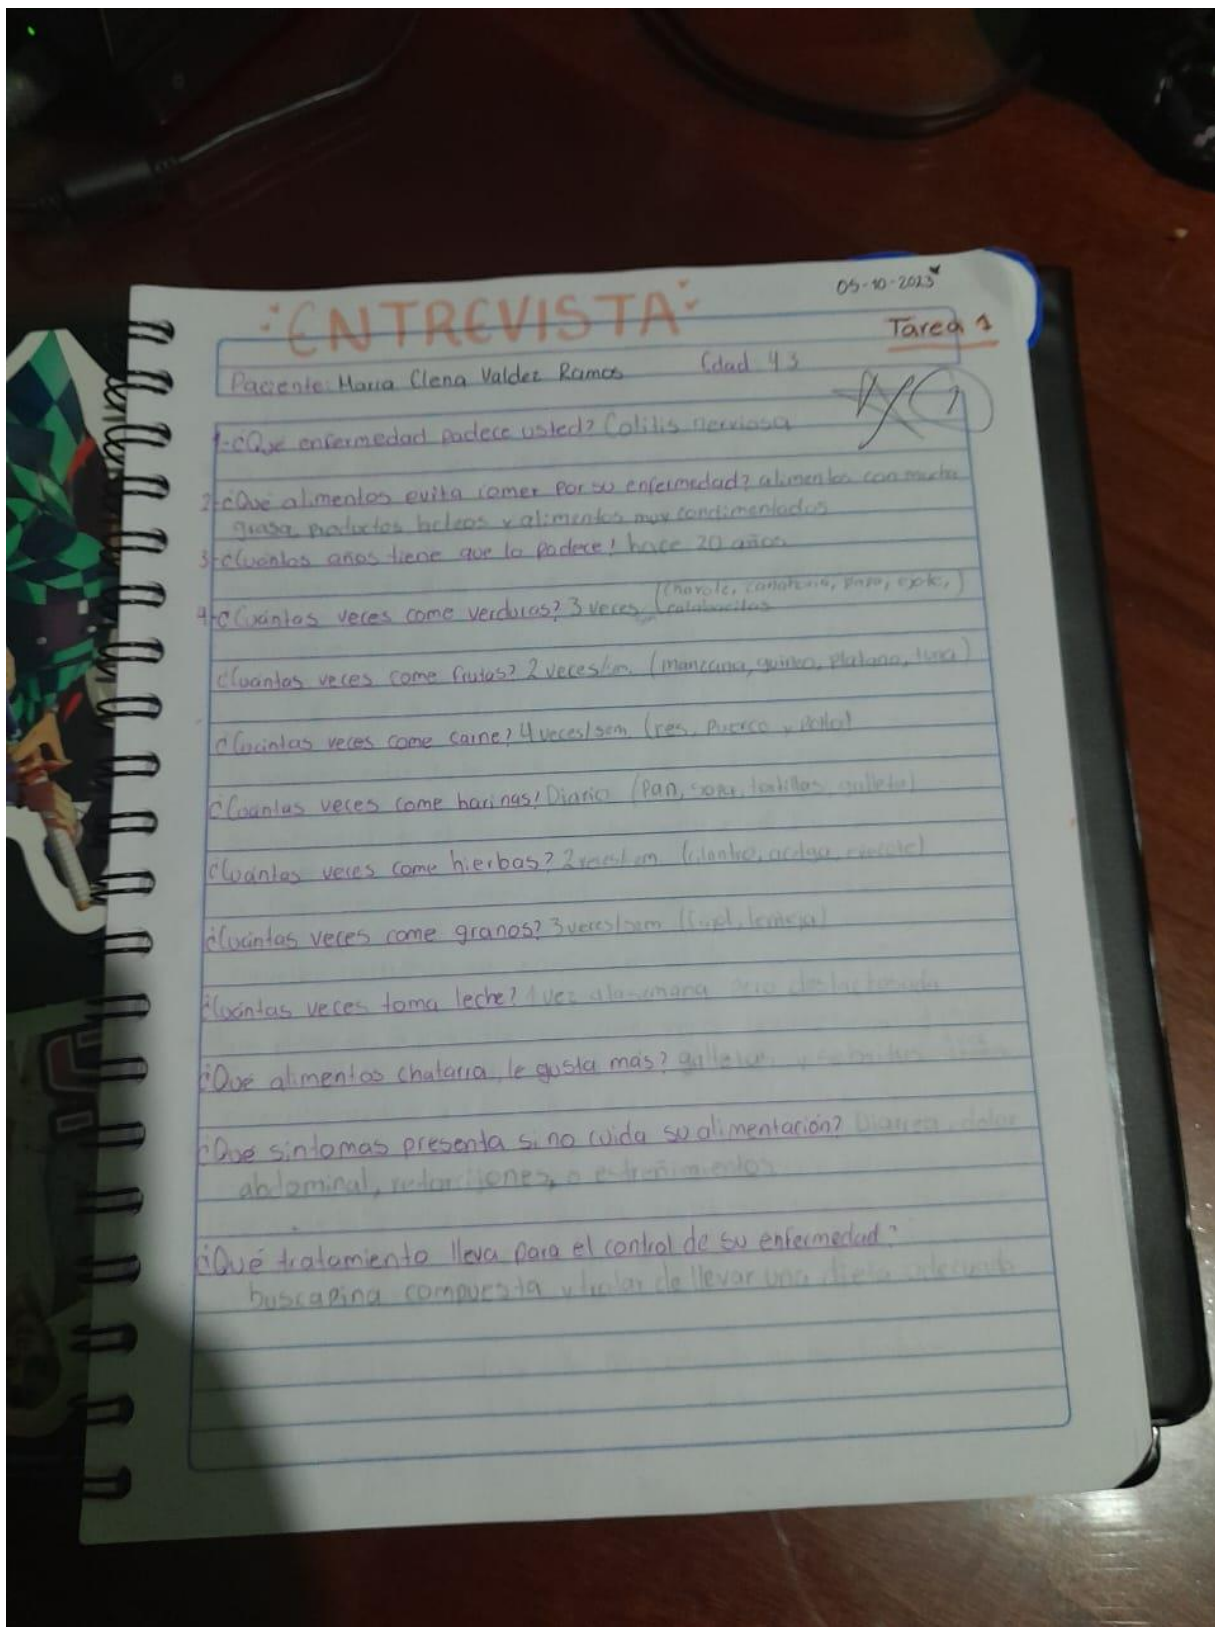 05-10-2023
ENTREVISTA
Tarea 1
Paciente: Maria Elena Valdez Ramos Edad 43
1-¿Qué enfermedad padece usted? Colitis nerviosa
2-¿Qué alimentos evita comer por su enfermedad? alimentos con mucha
grasa, productos lacteos y alimentos muy condimentados
3-¿Cuántos años tiene que lo padece? hace 20 años
4-¿Cuántas veces come verduras? 3 veces (chayote, zanahoria, papa, ejote,
calabacitas)
¿Cuántas veces come frutas? 2 veces/sem (manzana, guineo, platano, tuna)
¿Cuántas veces come carne? 4 veces/sem (res, puerco y pollo)
¿Cuántas veces come harinas? Diario (pan, sopa, tortillas, galleta)
¿Cuántas veces come hierbas? 2 veces/sem (cilantro, acelga,
¿Cuántas veces come granos? 3 veces/sem (frijol, lenteja)
¿Cuántas veces toma leche? 1 vez a la semana pero deslactosada
¿Qué alimentos chatarra le gusta más? galletas y
¿Qué sintomas presenta si no cuida su alimentación? Diarrea, dolor
abdominal, retorcijones, o estreñimientos
¿Qué tratamiento lleva para el control de su enfermedad?
buscapina compuesta y tratar de llevar una dieta adecuada